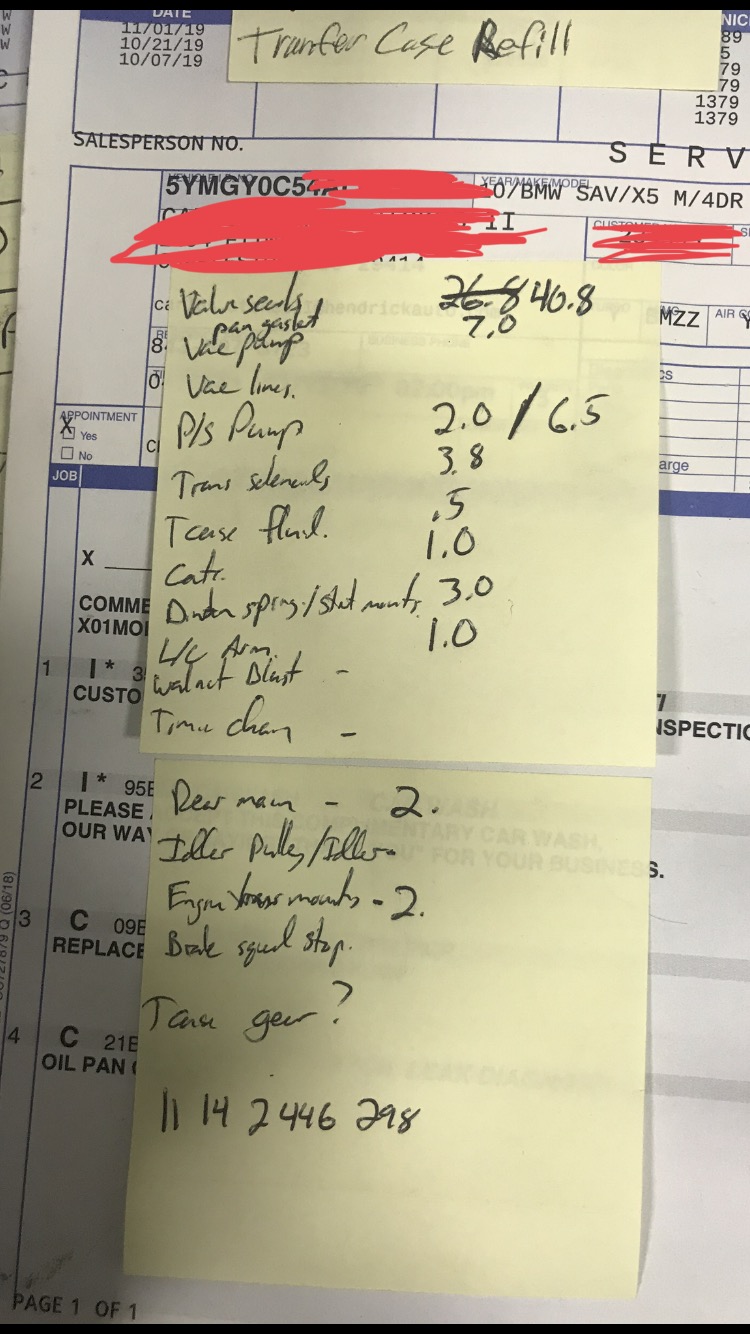 DATE
11/01/19
10/21/19
10/07/19
Tranfer Case Refill
NIC
89
5
79
79
1379
1379
SALESPERSON NO.
S E R V
5YMGY0C54
YEAR/MAKE/MODEL
10/BMW SAV/X5 M/4DR
II
Valve seals 26.8 40.8
pan gasket 7.0
Vac pump
Vac lines.
P/s Pump 2.0 / 6.5
Trans solenoids 3.8
Tcase fluid. .5
Catr. 1.0
spring/strut mounts. 3.0
L/C Arm. 1.0
Walnut Blast -
Timin chain -
MZZ
AIR CO
APPOINTMENT
X
Yes
No
arge
JOB
X
COMME
X01MO
1 I* 3
CUSTO
NSPECTIO
2 I* 95E
PLEASE
OUR WA
S.
3 C 09E
REPLACE
4 C 21E
OIL PAN
Rear main - 2.
Idler Pulley/Idler-
Engine/trans mounts - 2.
Brake squel stop.
Tcase gear?
11 14 2 446 298
PAGE 1 OF 1